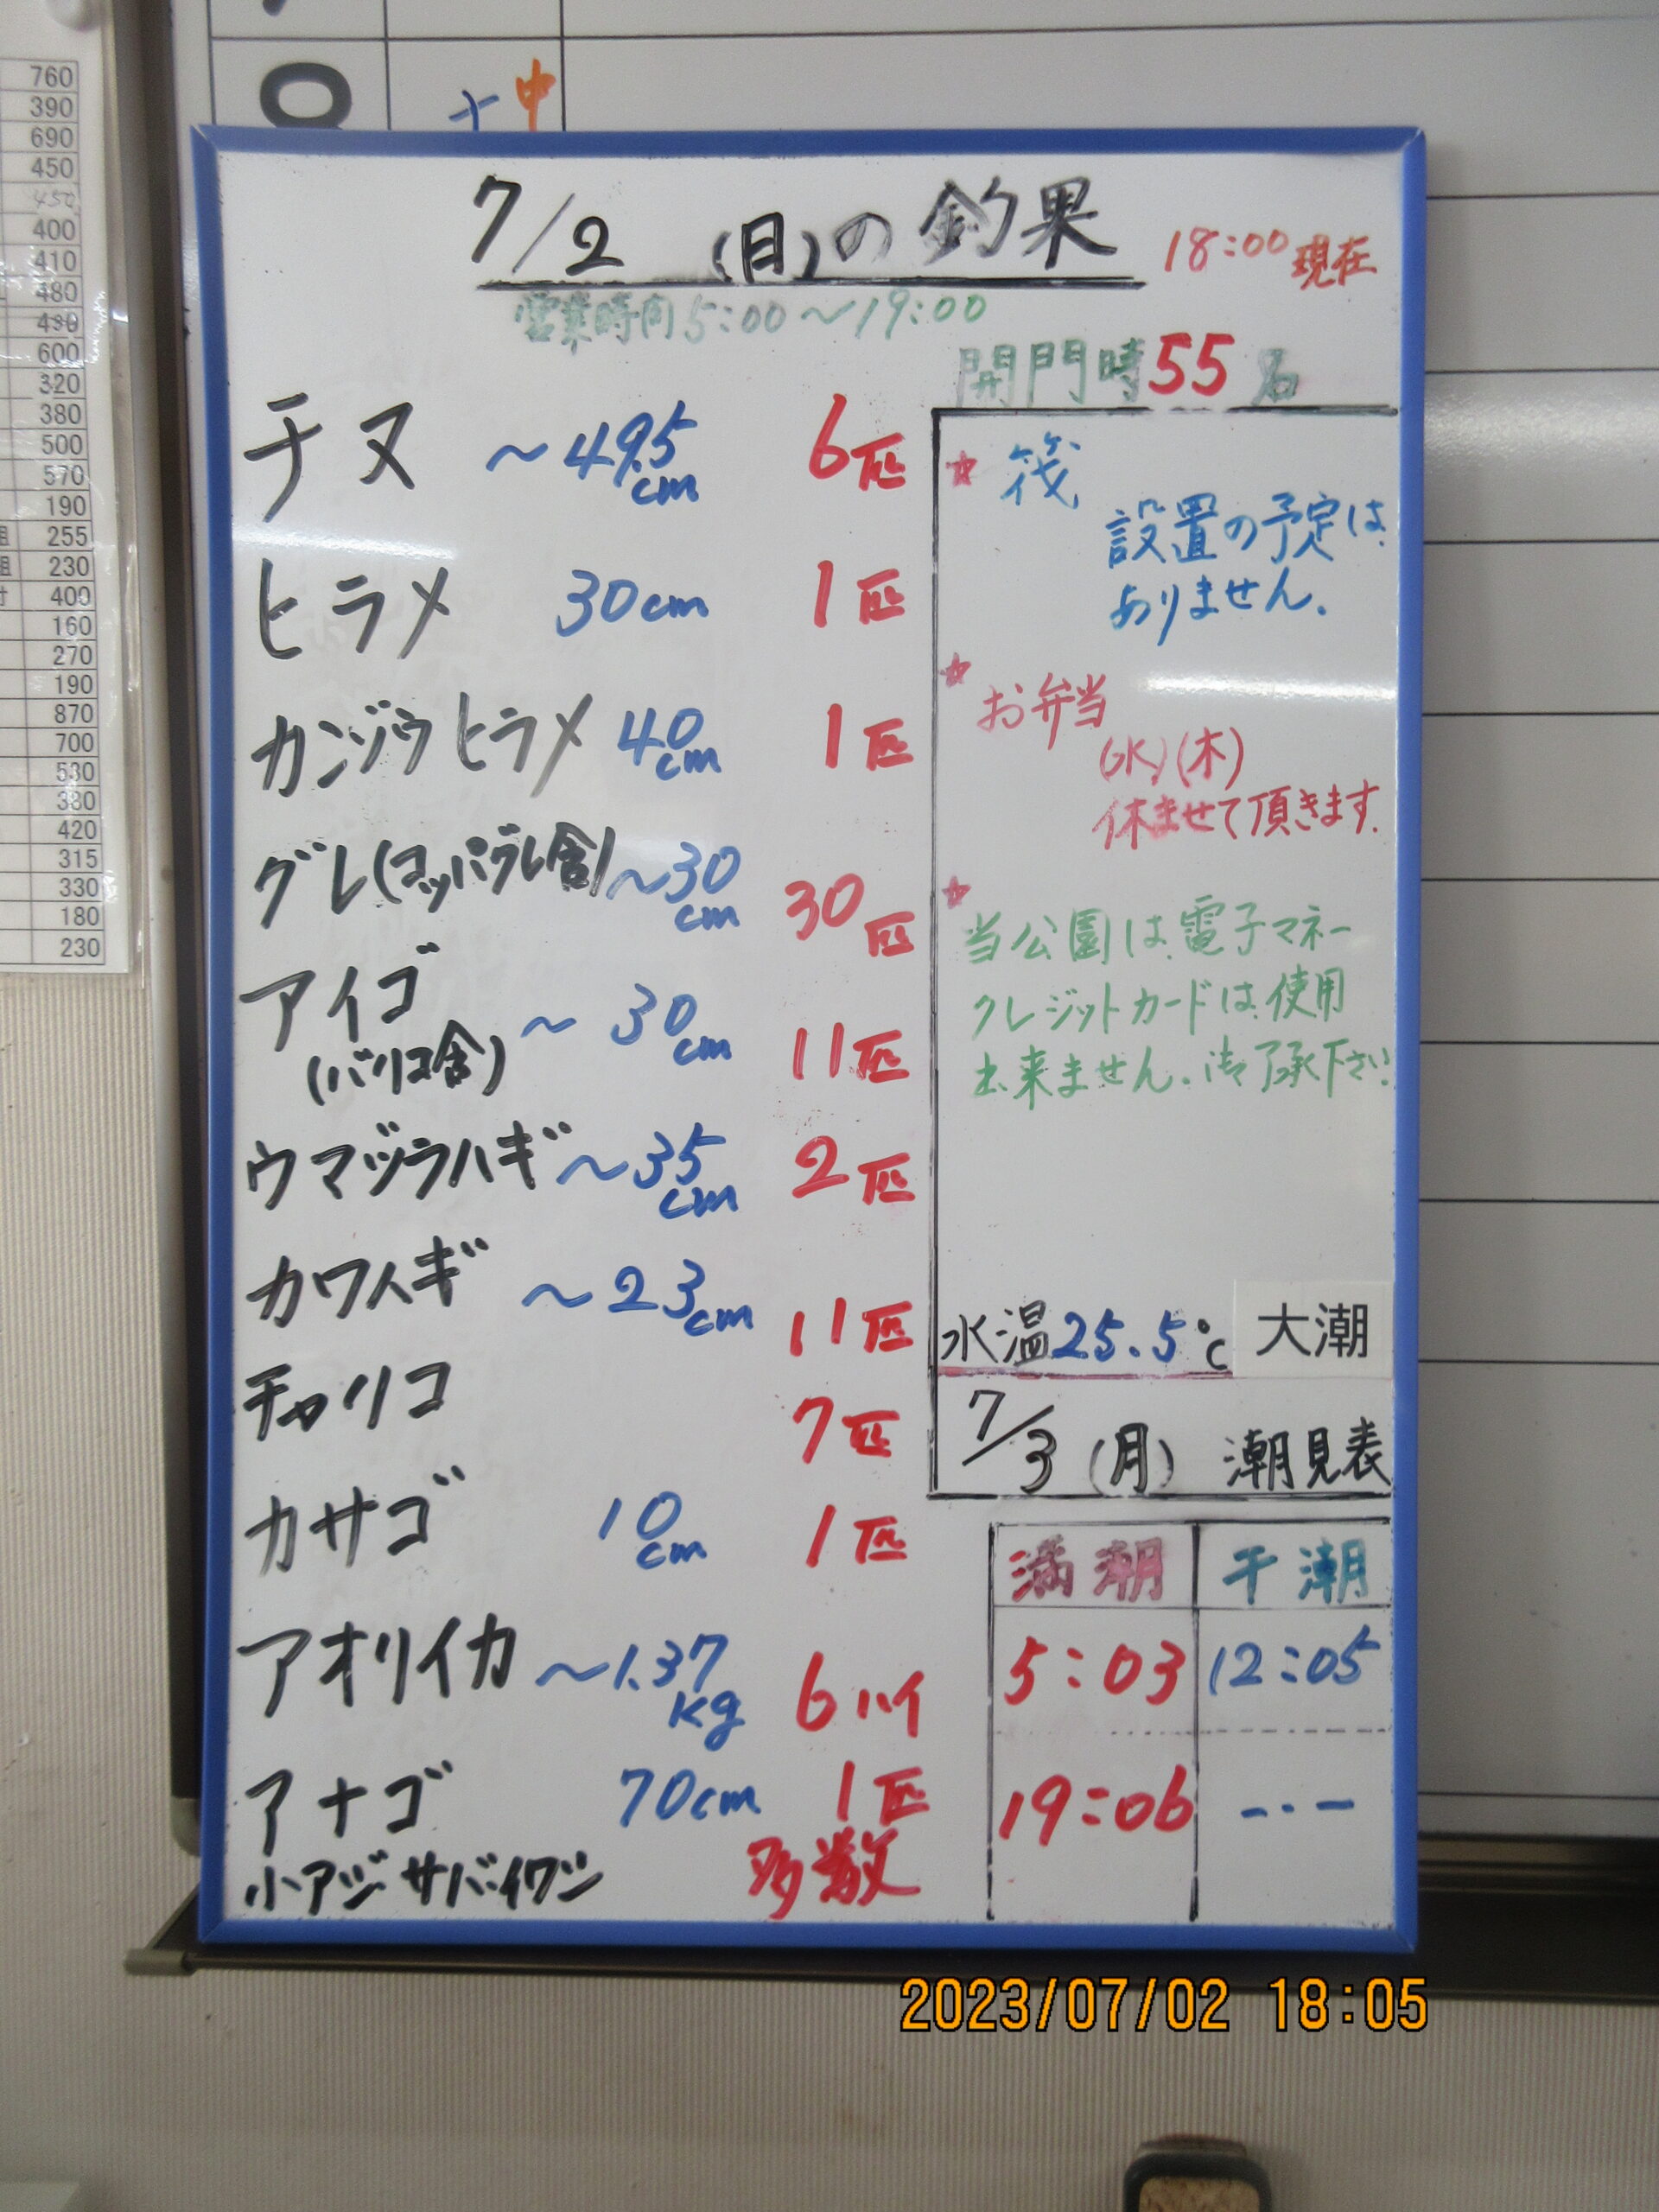 760
390
690
450
450
400
410
480
430
600
320
380
500
570
190
255
230
400
160
270
190
870
700
530
380
420
315
330
180
230
中
7/2 (日)の釣果 18:00現在
営業時間5:00〜19:00
開門時55名
チヌ 〜49.5cm 6匹
ヒラメ 30cm 1匹
ガンゾウヒラメ 40cm 1匹
グレ(コッパグレ含) 〜30cm 30匹
アイゴ(バリコ含) 〜30cm 11匹
ウマヅラハギ 〜35cm 2匹
カワハギ 〜23cm 11匹
チャリコ 7匹
カサゴ 10cm 1匹
アオリイカ 〜1.37kg 6ハイ
アナゴ 70cm 1匹
小アジ サバ・イワシ 多数
☆筏
設置の予定は
ありません.
☆お弁当
(水)(木)
休ませて頂きます.
☆
当公園は電子マネー
クレジットカードは使用
出来ません.御了承下さい.
水温25.5℃ 大潮
7/3 (月) 潮見表
満潮 干潮
5:03 12:05
19:06 -・-
2023/07/02 18:05